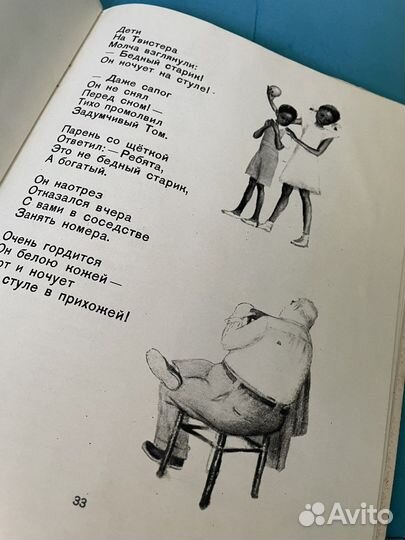 Дети
На Твистера
Молча взглянули:
— Бедный старик!
Он ночует на стуле! -
— Даже сапог
Он не снял
Перед сном! —
Тихо промолвил
Задумчивый Том.
Парень со щёткой
Ответил: — Ребята,
Это не бедный старик,
А богатый.
Он наотрез
Отказался вчера
С вами в соседстве
Занять номера.
Очень гордится
Он белою кожей —
от и ночует
стуле в прихожей!
33
Avito